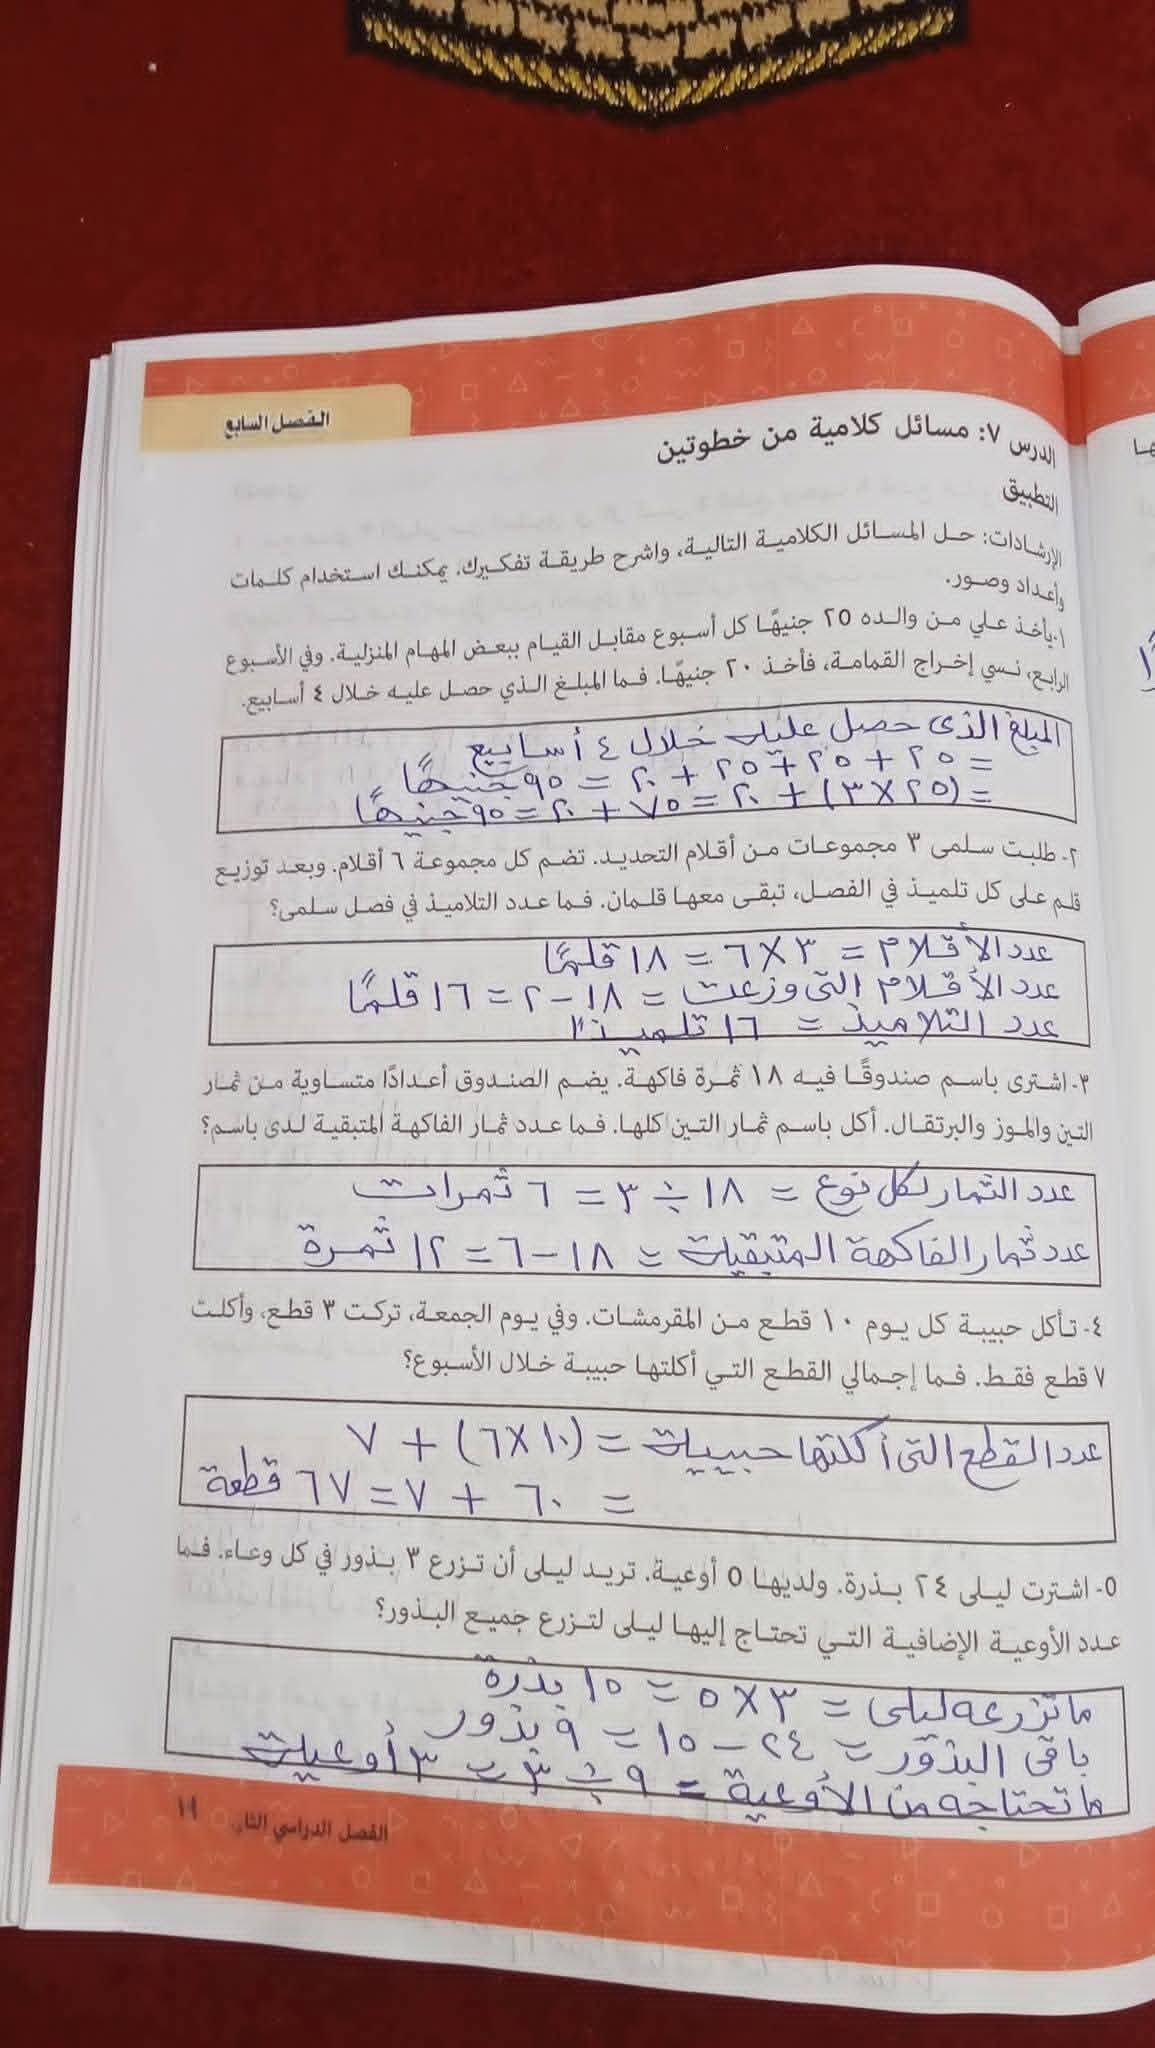 الفصل السابع
الدرس ٧: مسائل كلامية من خطوتين
التطبيق
الإرشادات: حل المسائل الكلامية التالية، واشرح طريقة تفكيرك. يمكنك استخدام كلمات
وأعداد وصور.
١- يأخذ علي من والده ٢٥ جنيهًا كل أسبوع مقابل القيام ببعض المهام المنزلية. وفي الأسبوع
الرابع، نسي إخراج القمامة، فأخذ ٢٠ جنيهًا. فما المبلغ الذي حصل عليه خلال ٤ أسابيع.
المبلغ الذى حصل عليه خلال ٤ أسابيع
= ٢٥ + ٢٥ + ٢٥ + ٢٠ = ٩٥ جنيهًا
= (٢٥ × ٣) + ٢٠ = ٧٥ + ٢٠ = ٩٥ جنيهًا
٢- طلبت سلمى ٣ مجموعات من أقلام التحديد. تضم كل مجموعة ٦ أقلام. وبعد توزيع
قلم على كل تلميذ في الفصل، تبقى معها قلمان. فما عدد التلاميذ في فصل سلمى؟
عدد الأقلام = ٣ × ٦ = ١٨ قلمًا
عدد الأقلام التى وزعت = ١٨ - ٢ = ١٦ قلمًا
عدد التلاميذ = ١٦ تلميذًا
٣- اشترى باسم صندوقًا فيه ١٨ ثمرة فاكهة. يضم الصندوق أعدادًا متساوية من ثمار
التين والموز والبرتقال. أكل باسم ثمار التين كلها. فما عدد ثمار الفاكهة المتبقية لدى باسم؟
عدد الثمار لكل نوع = ١٨ ÷ ٣ = ٦ ثمرات
عدد ثمار الفاكهة المتبقية = ١٨ - ٦ = ١٢ ثمرة
٤- تأكل حبيبة كل يوم ١٠ قطع من المقرمشات. وفي يوم الجمعة، تركت ٣ قطع، وأكلت
٧ قطع فقط. فما إجمالي القطع التي أكلتها حبيبة خلال الأسبوع؟
عدد القطع التى أكلتها حبيبة = (١٠ × ٦) + ٧
= ٦٠ + ٧ = ٦٧ قطعة
٥- اشترت ليلى ٢٤ بذرة. ولديها ٥ أوعية. تريد ليلى أن تزرع ٣ بذور في كل وعاء. فما
عدد الأوعية الإضافية التي تحتاج إليها ليلى لتزرع جميع البذور؟
ما تزرعه ليلى = ٣ × ٥ = ١٥ بذرة
باقى البذور = ٢٤ - ١٥ = ٩ بذور
ما تحتاجه من الأوعية = ٩ ÷ ٣ = ٣ أوعية
الفصل الدراسي الثاني ١٩